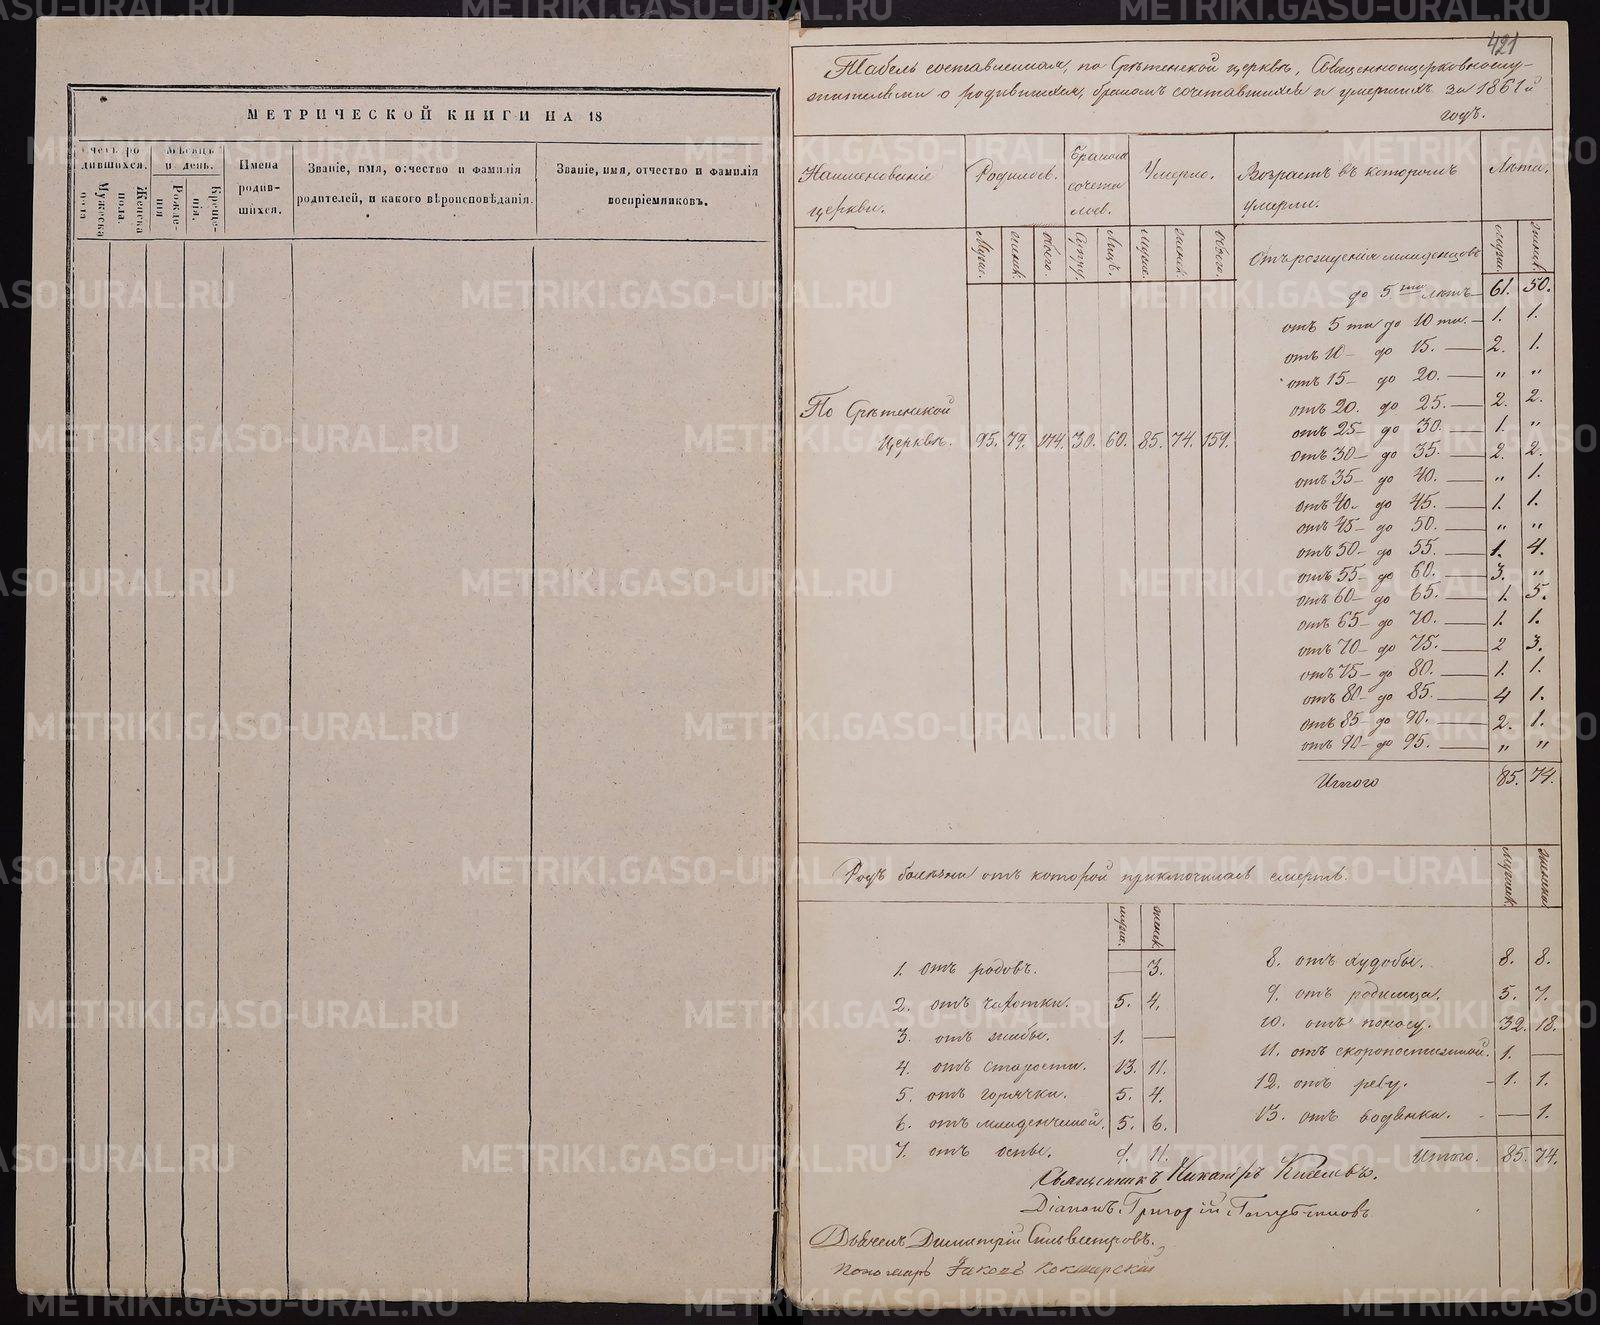 МЕТРИЧЕСКОЙ КНИГИ НА 18
Счетъ ро-
дившихся.
Мужеска
пола.
Женска
пола.
Мѣсяцъ
и день.
Рожде-
нія
Креще-
нія.
Имена
родив-
шихся.
Званіе, имя, отчество и фамилія
родителей, и какого вѣроисповѣданія.
Званіе, имя, отчество и фамилія
воспріемниковъ.
421
Табель составленная, по Срѣтенской церквѣ, Священноцерковнослу-
жителями о родившихся, бракомъ сочетавшихся и умершихъ за 1861й
годъ.
Наименованіе
церкви.
Родилось.
Бракомъ
сочета
лось.
Умерло.
Возрастъ въ которомъ
умерли.
Лѣта.
Муж. женск. обоего. Супру. Лицъ. муж. женск. обоего. муж. женск.
Отъ рожденія младенцовъ
до 5ти лѣтъ 61. 50.
отъ 5 ти до 10 ти. 1. 1.
отъ 10 до 15. 2. 1.
отъ 15 до 20. " "
отъ 20. до 25. 2. 2.
отъ 25 до 30. 1. "
отъ 30 до 35. 2. 2.
отъ 35 до 40. " 1.
отъ 40. до 45. 1. 1.
отъ 45 до 50. " "
отъ 50 до 55. 1. 4.
отъ 55 до 60. 3. "
отъ 60 до 65. 1. 5.
отъ 65 до 70. 1. 1.
отъ 70 до 75. 2 3.
отъ 75 до 80. 1. 1.
отъ 80 до 85. 4 1.
отъ 85 до 90. 2. 1.
отъ 90 до 95. " "
Итого 85. 74.
По Срѣтенской
Церквѣ. 95. 79. 174. 30. 60. 85. 74. 159.
Родъ болѣзни отъ которой приключилась смерть.
муж. женск. мужск. женска
1. отъ родовъ. — 3.
2. отъ чахотки. 5. 4.
3. отъ жабы. 1. —
4. отъ старости. 13. 11.
5. отъ горячки. 5. 4.
6. отъ младенческой. 5. 6.
7. отъ оспы. 9. 11.
8. отъ худобы. 8. 8.
9. отъ родимца. 5. 7.
10. отъ поносу. 32. 18.
11. отъ скоропостижной. 1. —
12. отъ реву. 1. 1.
13. отъ водянки. — 1.
Итого. 85. 74.
Священникъ Никаноръ
Діаконъ Григорій
Дьячекъ Димитрій Сильвестровъ.
Пономарь Іаковъ
METRIKI.GASO-URAL.RU